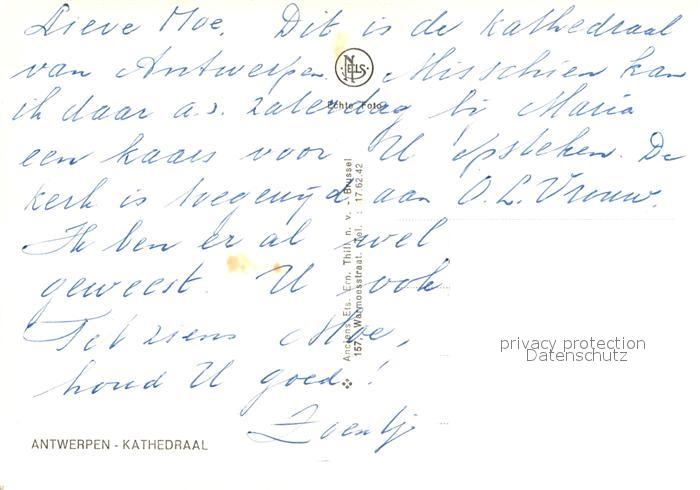 Lieve Moe. Dit is de kathedraal
van Antwerpen. Misschien kan
ik daar a.s. zaterdag bij Maria
een kaars voor U opsteken. De
kerk is toegewijd aan O.L. Vrouw.
Ik ben er al wel
geweest. U ook
Tot ziens Moe,
houd U goed!
Zoentje
NELS
Echte Foto
Anciens Ets. Ern. Thill n. v. - Brussel
157, Warmoesstraat. Tel. : 17.62.42
privacy protection
Datenschutz
ANTWERPEN - KATHEDRAAL